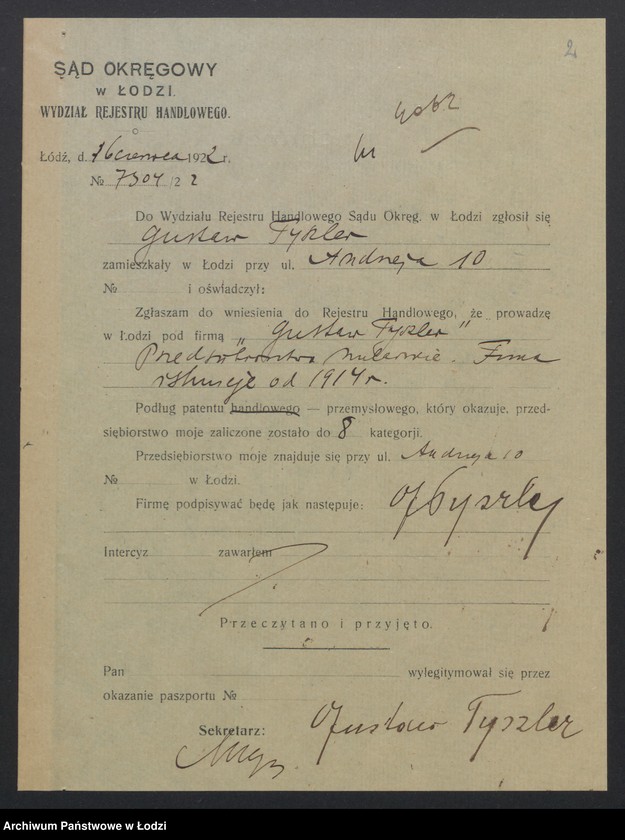 2
SĄD OKRĘGOWY
w ŁODZI.
WYDZIAŁ REJESTRU HANDLOWEGO.
Łódź, d. 16 czerwca 1922 r.
№ 7304/22
Do Wydziału Rejestru Handlowego Sądu Okręg. w Łodzi zgłosił się
Gustaw Tyszler
zamieszkały w Łodzi przy ul. Andrzeja 10
№ i oświadczył:
Zgłaszam do wniesienia do Rejestru Handlowego, że prowadzę
w Łodzi pod firmą „Gustaw Tyszler"
Przedsiębiorstwo mularskie. Firma
istnieje od 1914 r.
Podług patentu handlowego — przemysłowego, który okazuje, przed-
siębiorstwo moje zaliczone zostało do 8 kategorji.
Przedsiębiorstwo moje znajduje się przy ul. Andrzeja 10
№ w Łodzi.
Firmę podpisywać będę jak następuje: GTyszler
Intercyz zawarłem
Przeczytano i przyjęto.
Pan wylegitymował się przez
okazanie paszportu №
Sekretarz: Gustaw Tyszler
Archiwum Państwowe w Łodzi